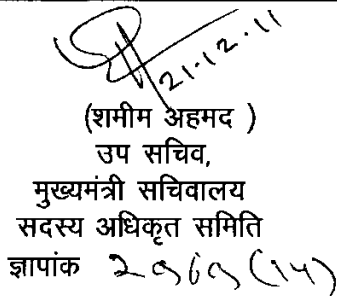 21.12.11
(शमीम अहमद )
उप सचिव,
मुख्यमंत्री सचिवालय
सदस्य अधिकृत समिति
ज्ञापांक